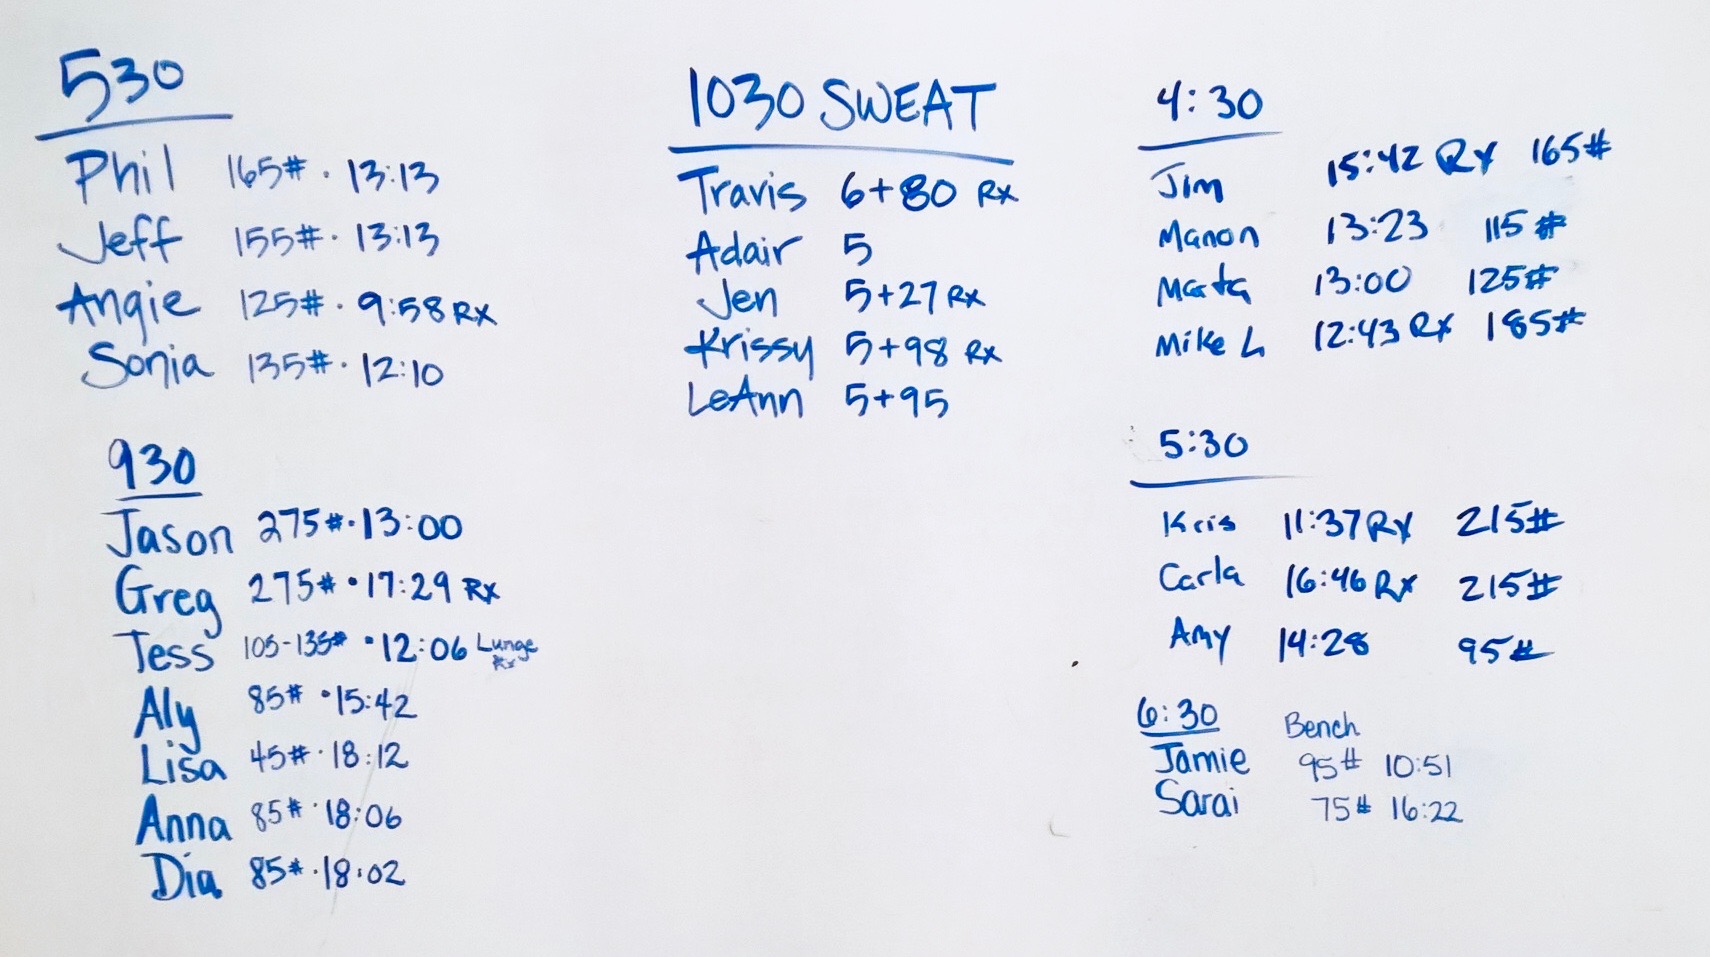 530
Phil 165# · 13:13
Jeff 155# · 13:13
Angie 125# · 9:58 Rx
Sonia 135# · 12:10
930
Jason 275# · 13:00
Greg 275# · 17:29 Rx
Tess 105-135# · 12:06 Lunge
Rx
Aly 85# · 15:42
Lisa 45# · 18:12
Anna 85# · 18:06
Dia 85# · 18:02
1030 SWEAT
Travis 6+80 Rx
Adair 5
Jen 5+27 Rx
Krissy 5+98 Rx
LeAnn 5+95
4:30
Jim 15:42 Rx 165#
Manon 13:23 115#
Marta 13:00 125#
Mike L 12:43 Rx 185#
5:30
Kris 11:37 Rx 215#
Carla 16:46 Rx 215#
Amy 14:28 95#
6:30 Bench
Jamie 95# 10:51
Sarai 75# 16:22